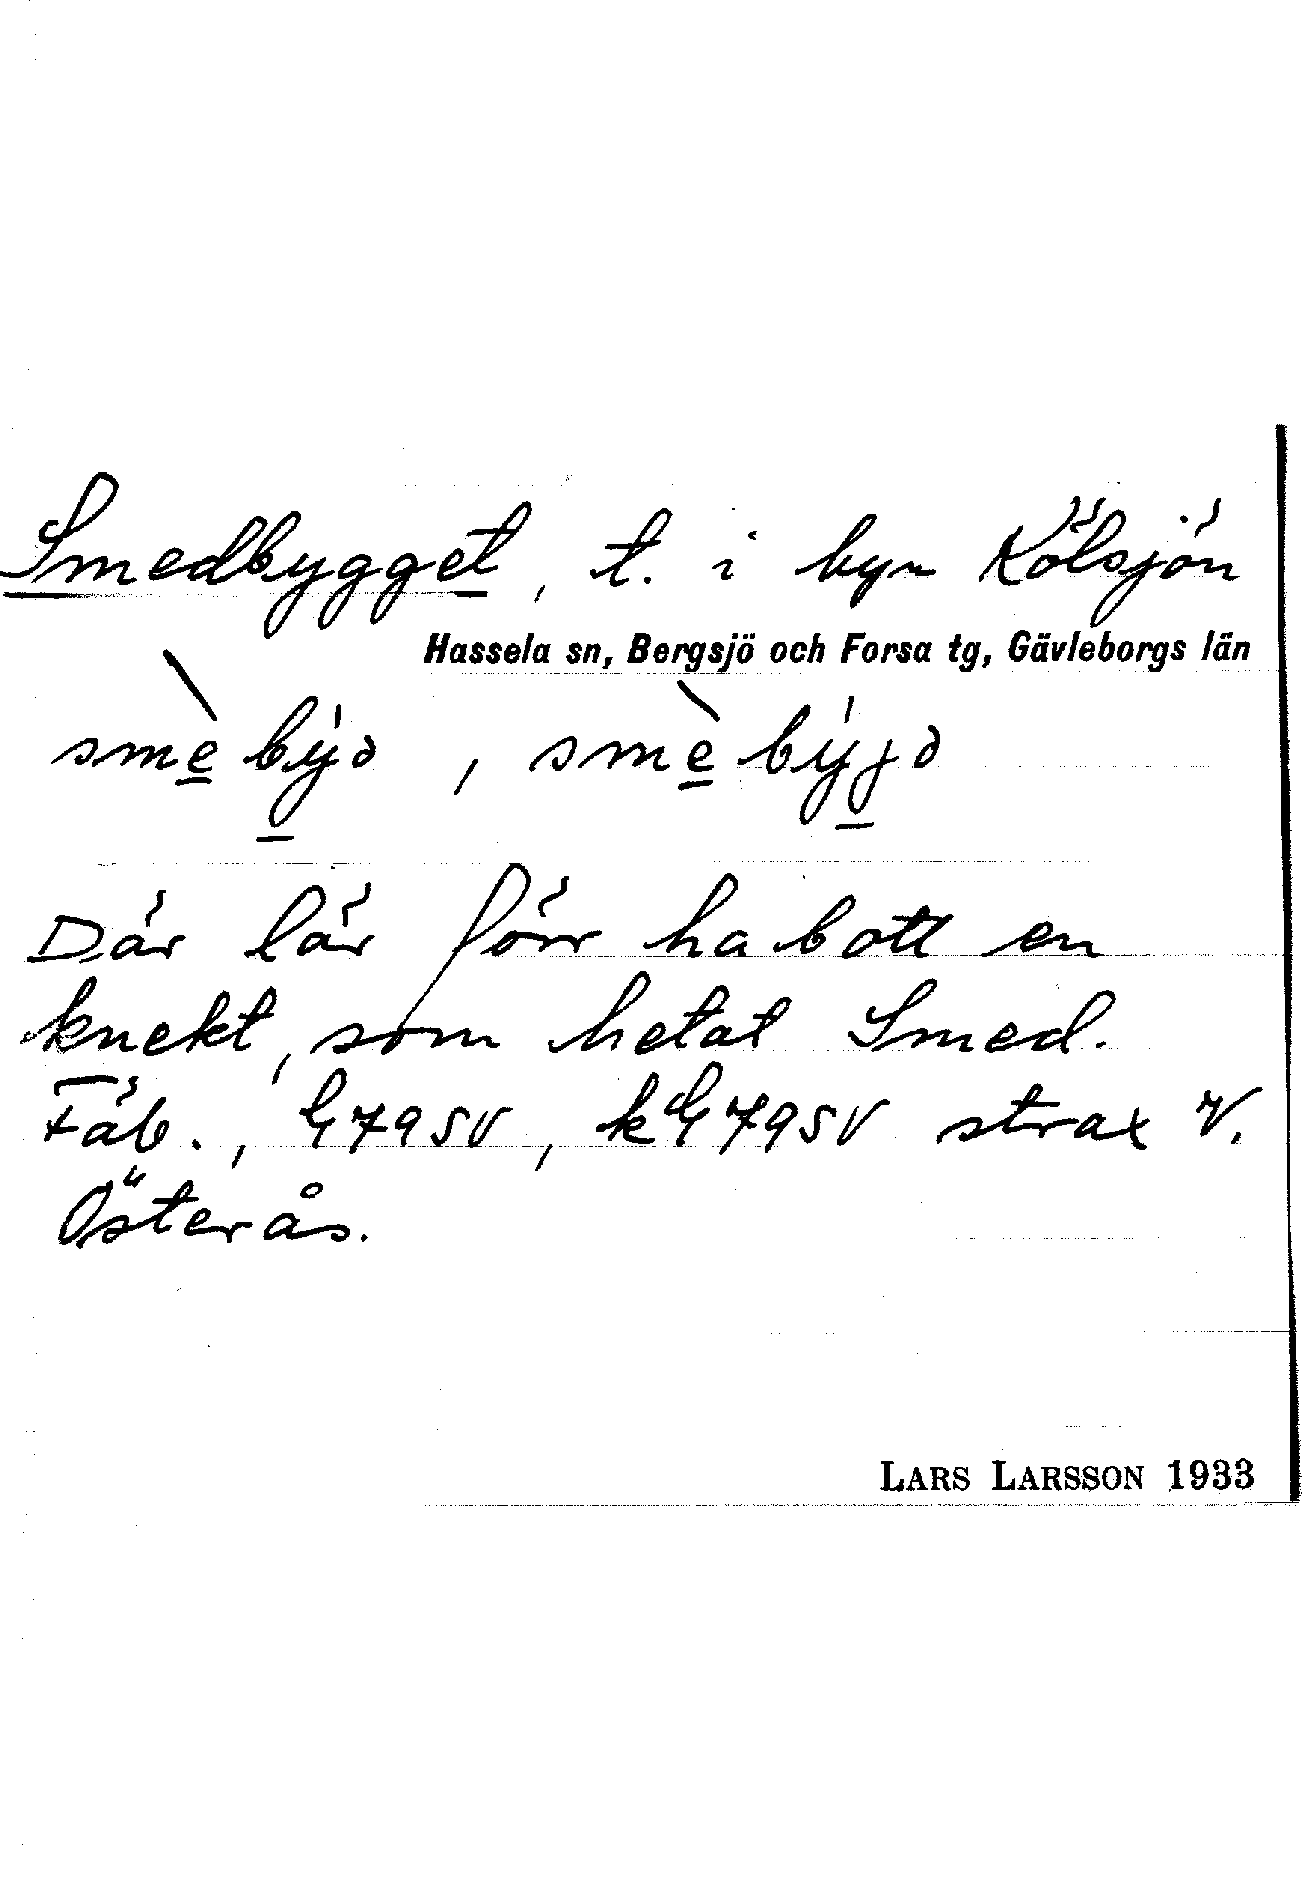 Smedbygget, t. i byn Kölsjön
Hassela sn, Bergsjö och Forsa tg, Gävleborgs län
smèbýə, smèbýjə
Där lär förr ha bott en
knekt, som hetat Smed.
Fäb., G 79 SV, kG 79 SV strax V.
Österås.
LARS LARSSON 1933